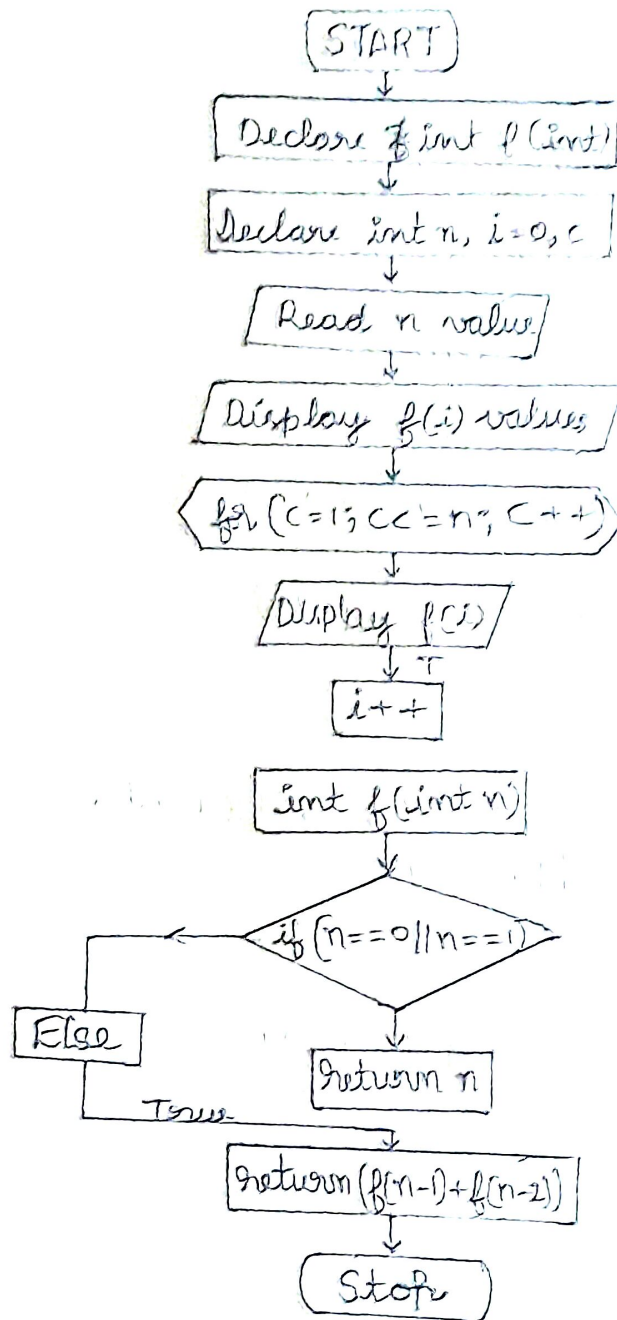 START
Declare int f(int)
Declare int n, i=0, c
Read n value
Display f(i) values
for (c=1; c<=n; c++)
Display f(i)
T
i++
int f(int n)
if (n==0||n==1)
Else
return n
True
return (f(n-1)+f(n-2))
Stop